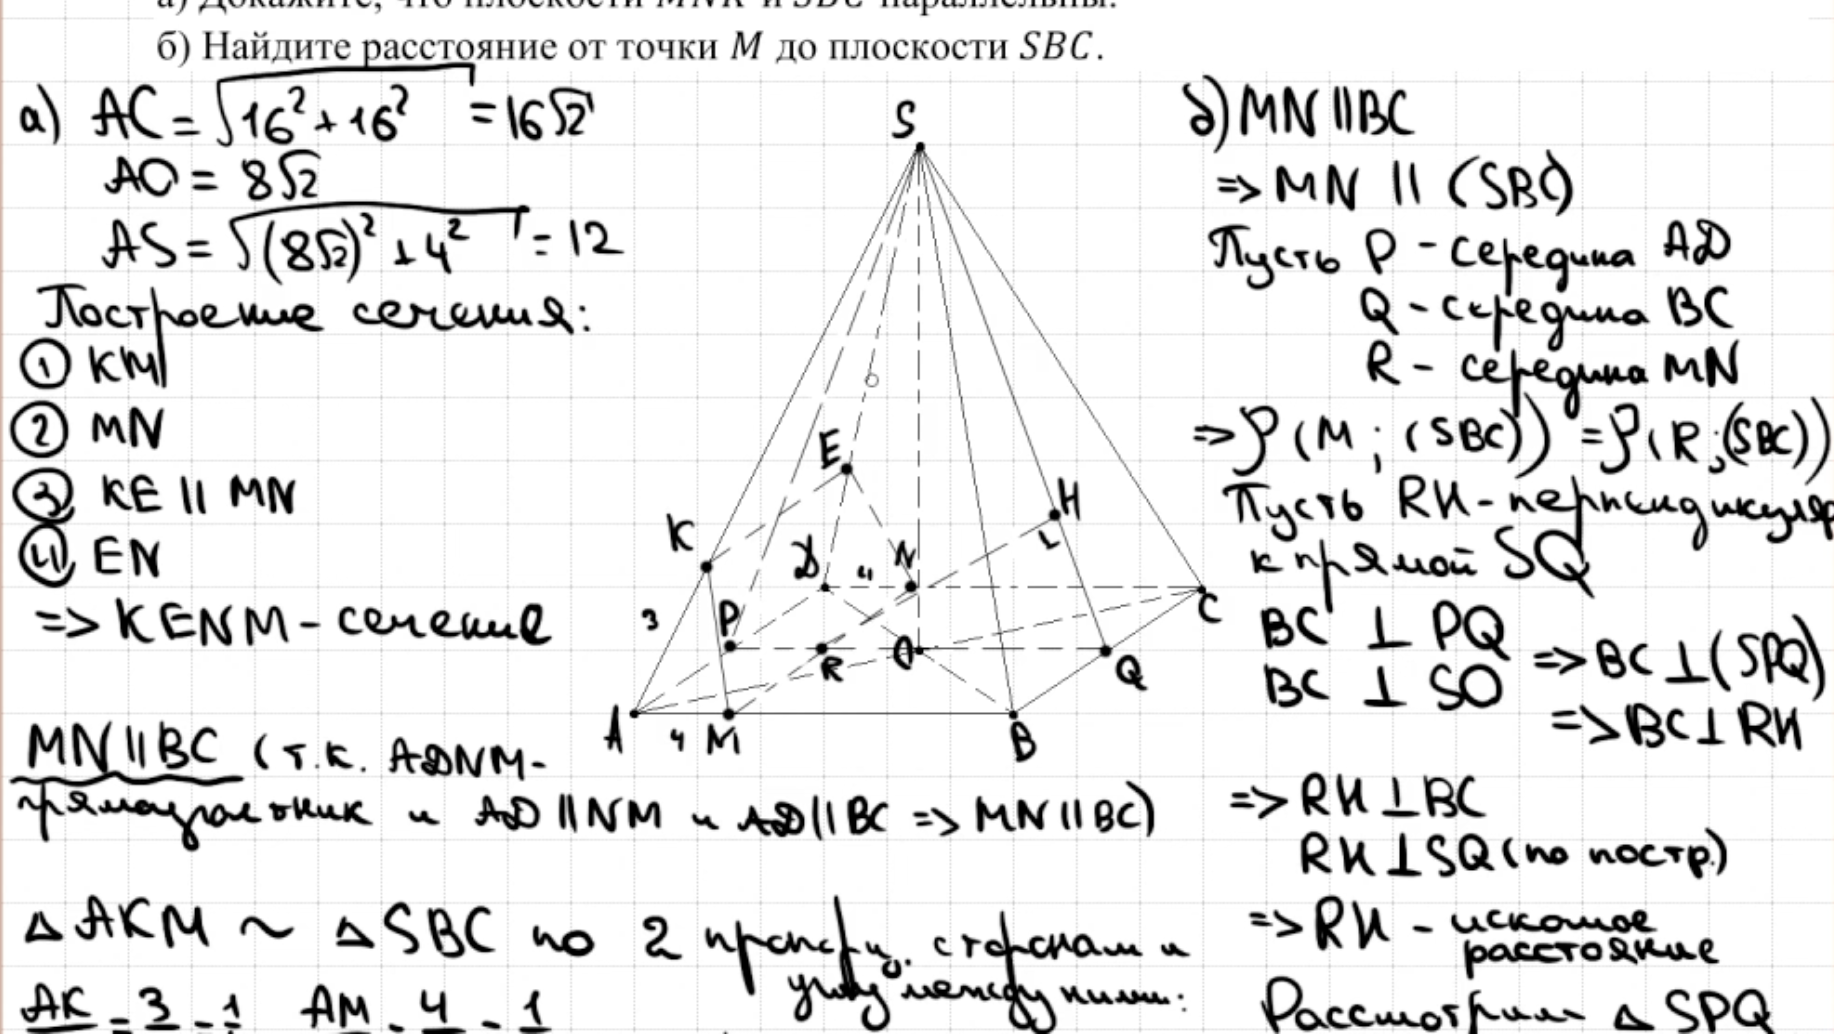 а) Докажите, что плоскости MNK и SBC параллельны.
б) Найдите расстояние от точки M до плоскости SBC.
а) AC = √16² + 16² = 16√2
AO = 8√2
AS = √(8√2)² + 4² = 12
Построение сечения:
① KM
② MN
③ KE || MN
④ EN
=> KENM - сечение
MN || BC (т.к. ADNM -
прямоугольник и AD || NM и AD || BC => MN || BC)
△ AKM ~ △ SBC по 2 пропорц. сторонам и
углу между ними:
AK = 3 = 1 AM = 4 = 1
S
E
K
H
D 4 N
3
P
C
R O Q
A 4 M B
б) MN || BC
=> MN || (SBC)
Пусть P - середина AD
Q - середина BC
R - середина MN
=> ρ(M; (SBC)) = ρ(R; (SBC))
Пусть RH - перпендикуляр
к прямой SQ
BC ⊥ PQ
BC ⊥ SO => BC ⊥ (SPQ)
=> BC ⊥ RH
=> RH ⊥ BC
RH ⊥ SQ (по постр.)
=> RH - искомое
расстояние
Рассмотрим △ SPQ